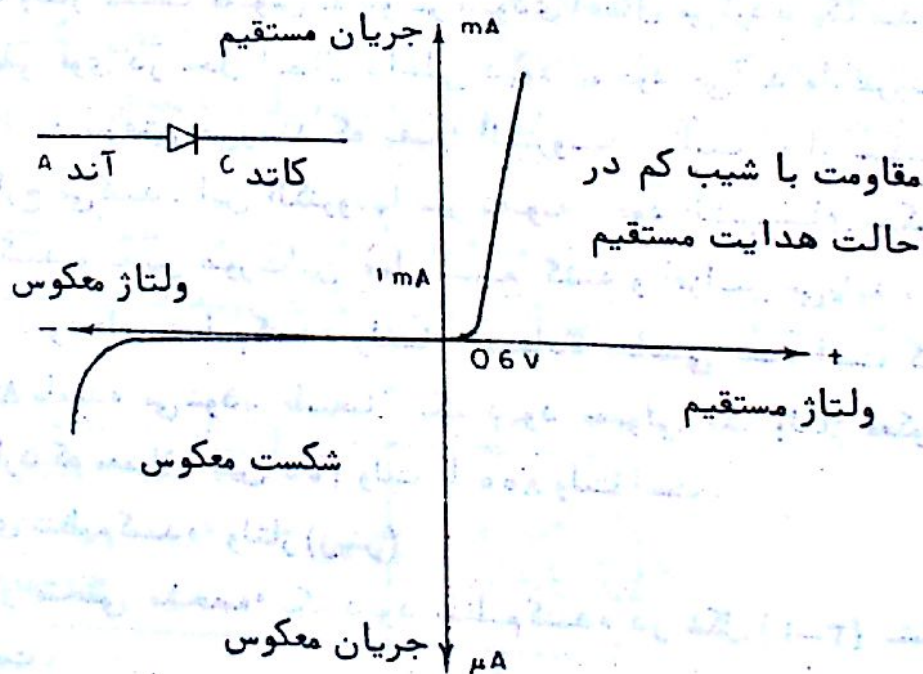 جریان مستقیم
mA
A آند
C کاتد
مقاومت با شیب کم در
حالت هدایت مستقیم
ولتاژ معکوس
1 mA
−
+
0 6 V
ولتاژ مستقیم
شکست معکوس
جریان معکوس
μA